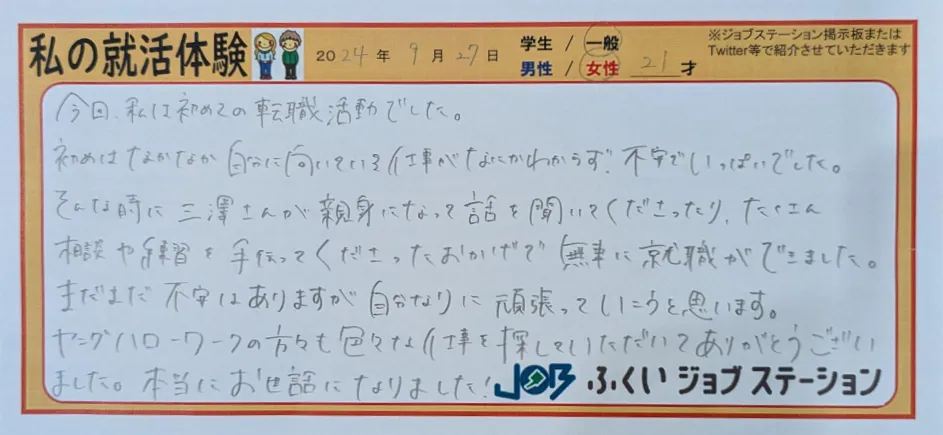 私の就活体験
2024年 9月 27日
学生 / 一般
男性 / 女性 21才
※ジョブステーション掲示板または
Twitter等で紹介させていただきます
今回、私は初めての転職活動でした。
初めはなかなか自分に向いている仕事がなにかわからず、不安でいっぱいでした。
そんな時に三澤さんが親身になって話を聞いてくださったり、たくさん
相談や練習を手伝ってくださったおかげで無事に就職ができました。
まだまだ不安はありますが自分なりに頑張っていこうと思います。
ヤングハローワークの方々も色々な仕事を探していただいてありがとうござい
ました。本当にお世話になりました!
JOB ふくいジョブステーション